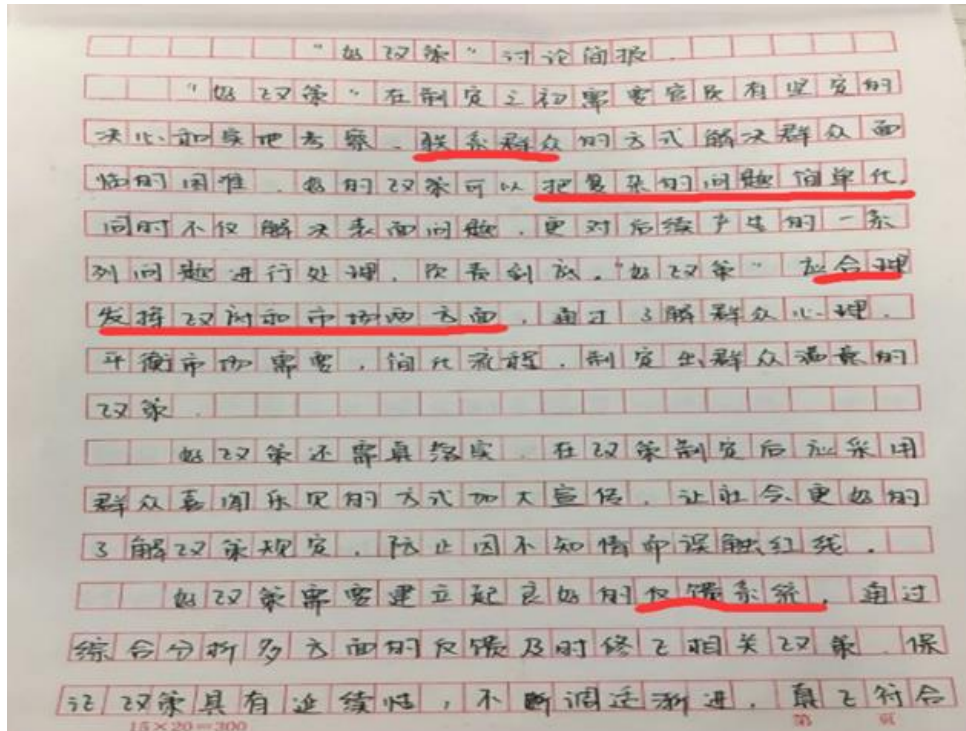 “好政策”讨论简报
“好政策”在制定之初需要官民有坚定的
决心和实地考察、联系群众的方式解决群众面
临的困难、好的政策可以把复杂的问题简单化,
同时不仅解决表面问题,更对后续产生的一系
列问题进行处理,负责到底。“好政策”应合理
发挥政府和市场两方面,通过了解群众心理、
平衡市场需要,简化流程,制定出群众满意的
政策。
好政策还需真落实。在政策制定后应采用
群众喜闻乐见的方式加大宣传,让社会更好的
了解政策规定,防止因不知情而误触红线。
好政策需要建立起良好的反馈系统,通过
综合分析多方面的反馈及时修正相关政策、保
证政策具有延续性,不断调适渐进,真正符合
15×20=300 第 页